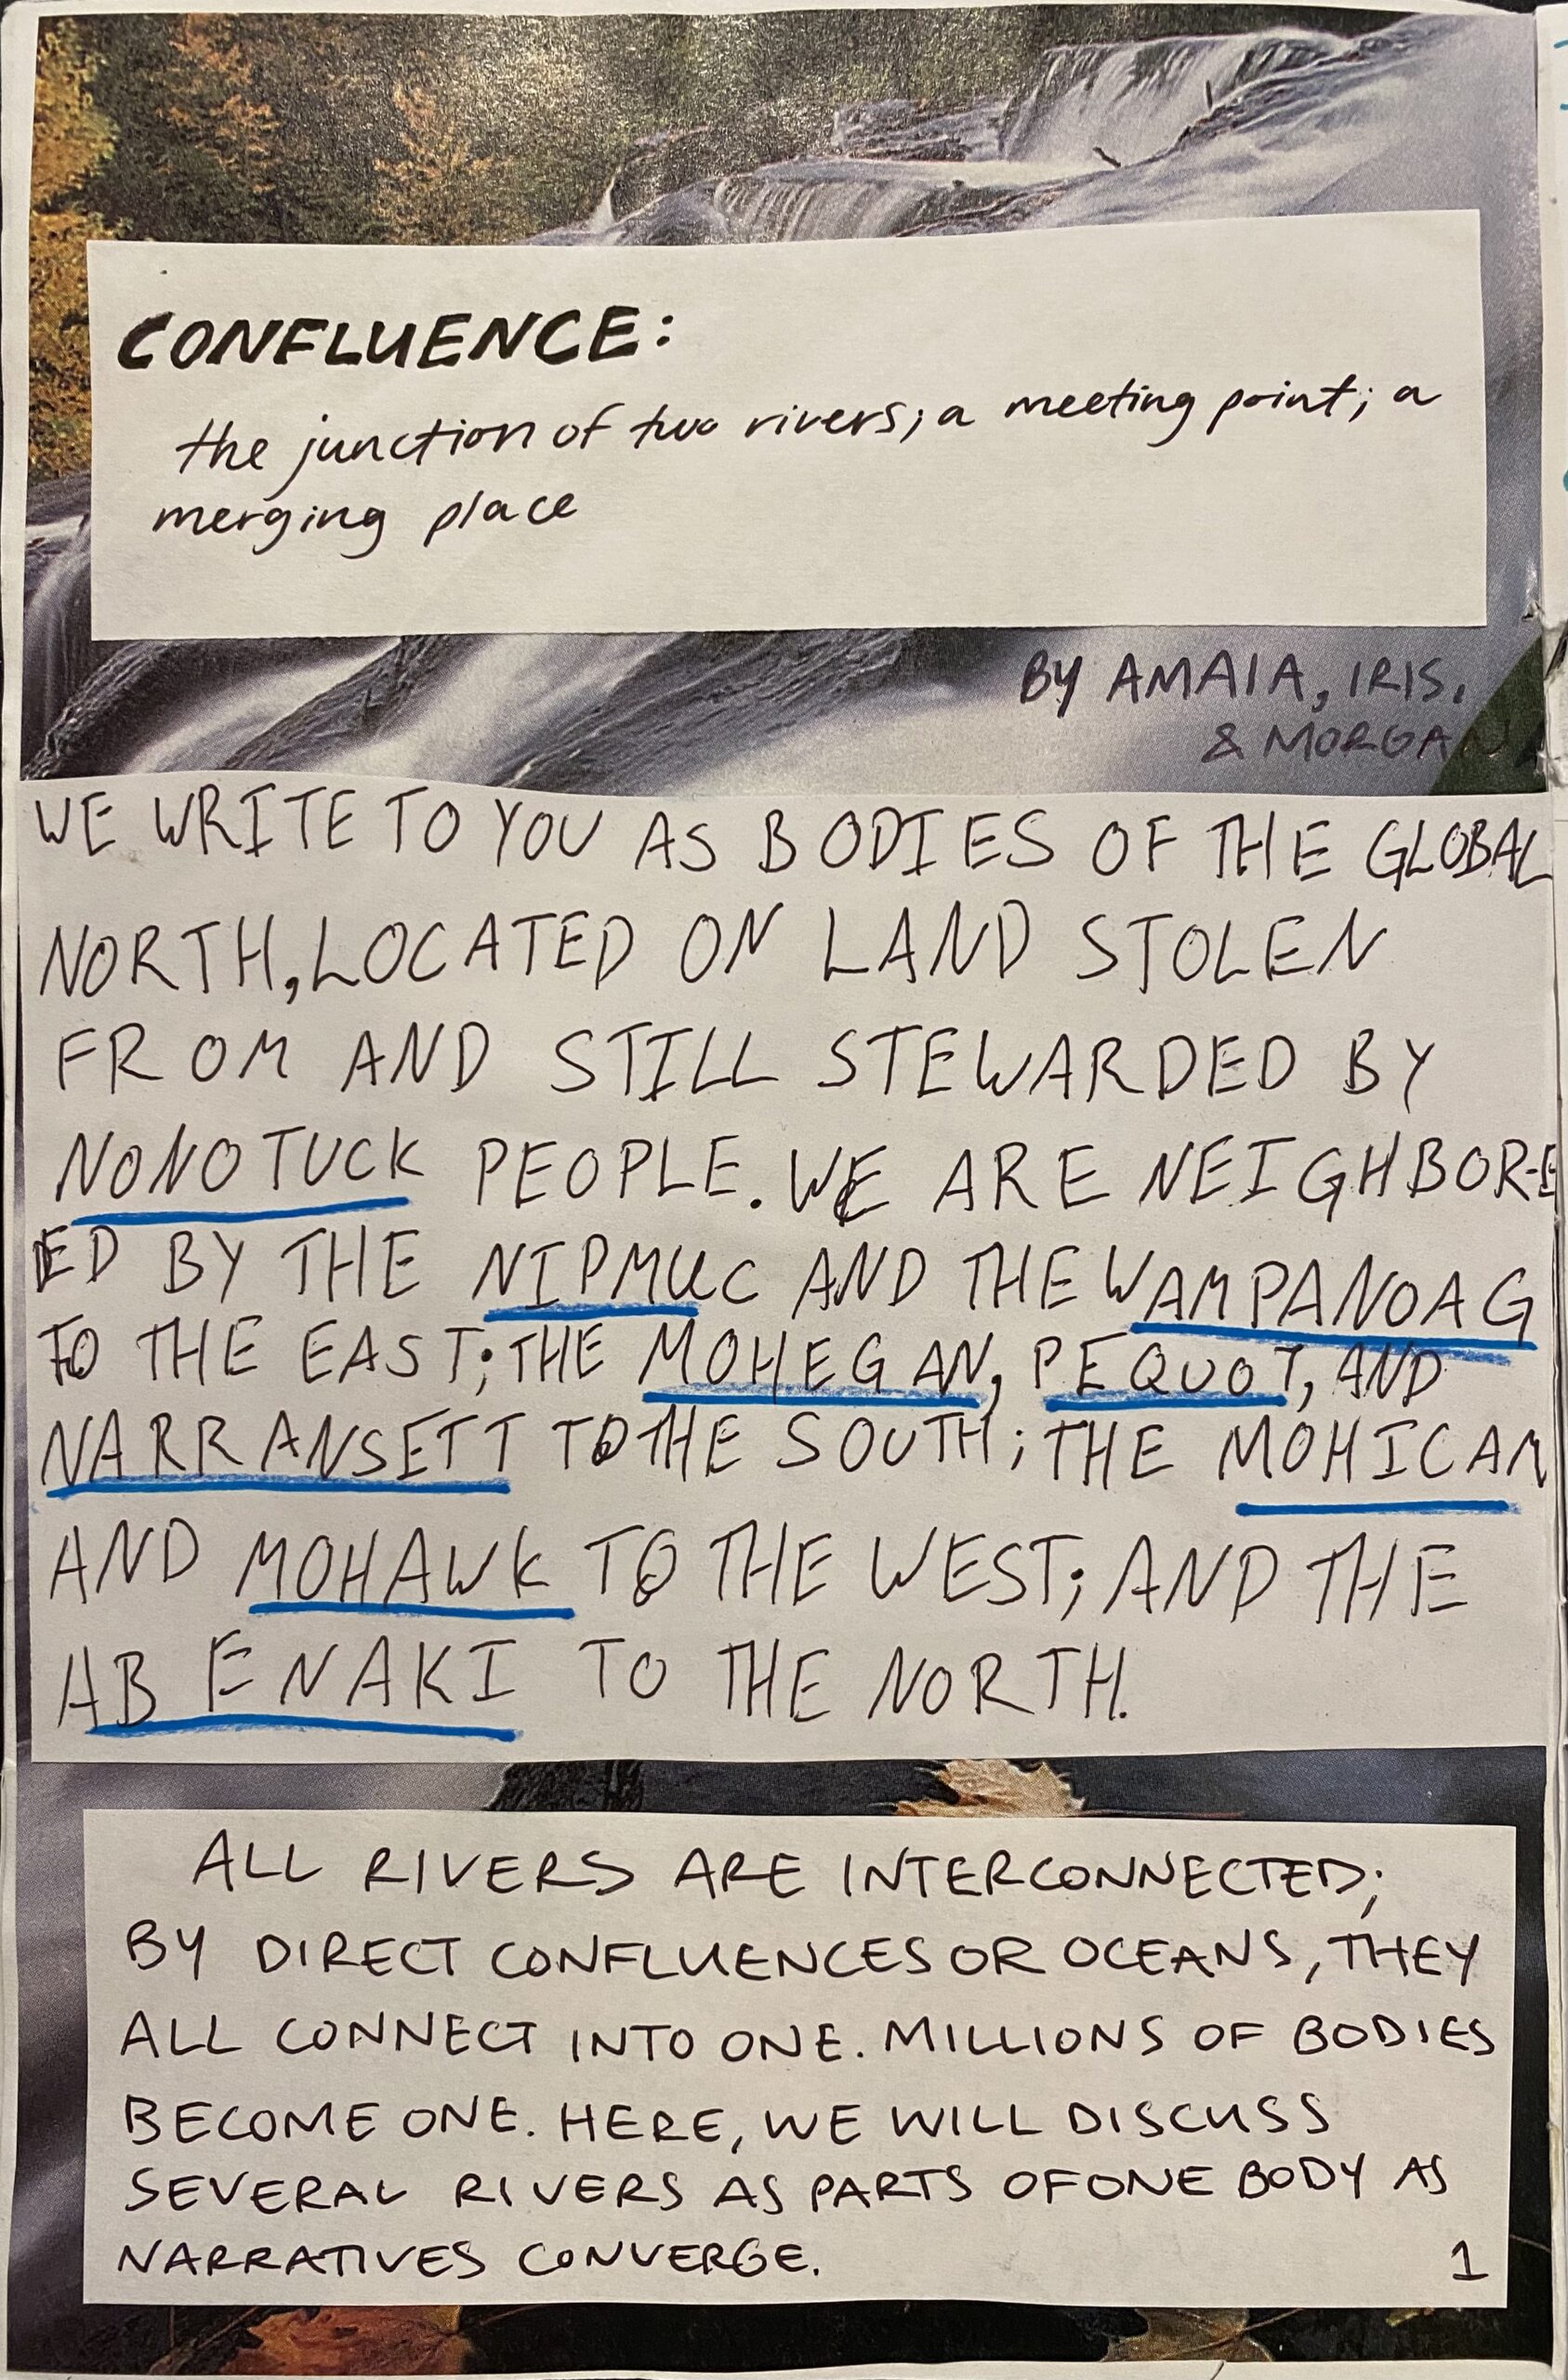 CONFLUENCE:
the junction of two rivers; a meeting point; a
merging place
BY AMAIA, IRIS,
& MORGAN
WE WRITE TO YOU AS BODIES OF THE GLOBAL
NORTH, LOCATED ON LAND STOLEN
FROM AND STILL STEWARDED BY
NONOTUCK PEOPLE. WE ARE NEIGHBOR-E
ED BY THE NIPMUC AND THE WAMPANOAG
TO THE EAST; THE MOHEGAN, PEQUOT, AND
NARRANSETT TO THE SOUTH; THE MOHICAN
AND MOHAWK TO THE WEST; AND THE
ABENAKI TO THE NORTH.
ALL RIVERS ARE INTERCONNECTED;
BY DIRECT CONFLUENCES OR OCEANS, THEY
ALL CONNECT INTO ONE. MILLIONS OF BODIES
BECOME ONE. HERE, WE WILL DISCUSS
SEVERAL RIVERS AS PARTS OF ONE BODY AS
NARRATIVES CONVERGE.
1